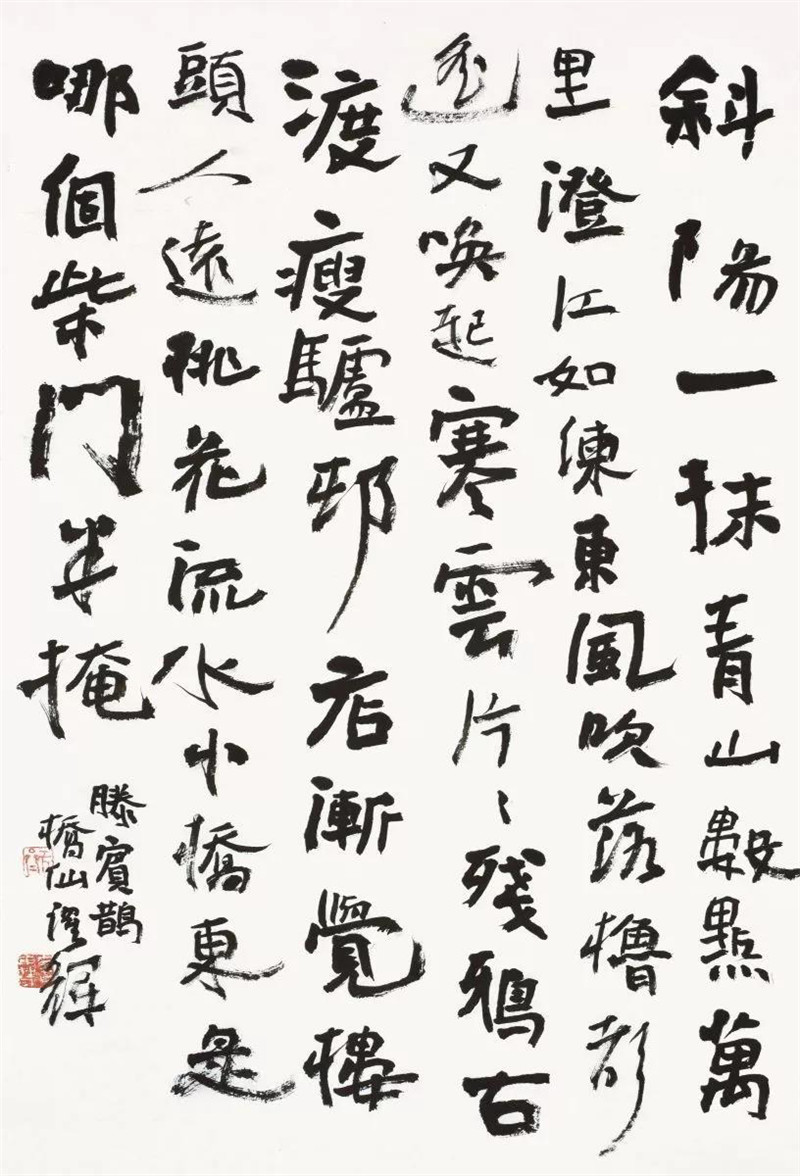 斜陽一抹青山數點萬
里澄江如練東風吹落櫓聲
遥又喚起寒雲片〻殘鴉古
渡瘦驢邨店漸覺樓
頭人遠桃花流水小橋東是
哪個柴門半掩
滕賓鵲
橋仙輝